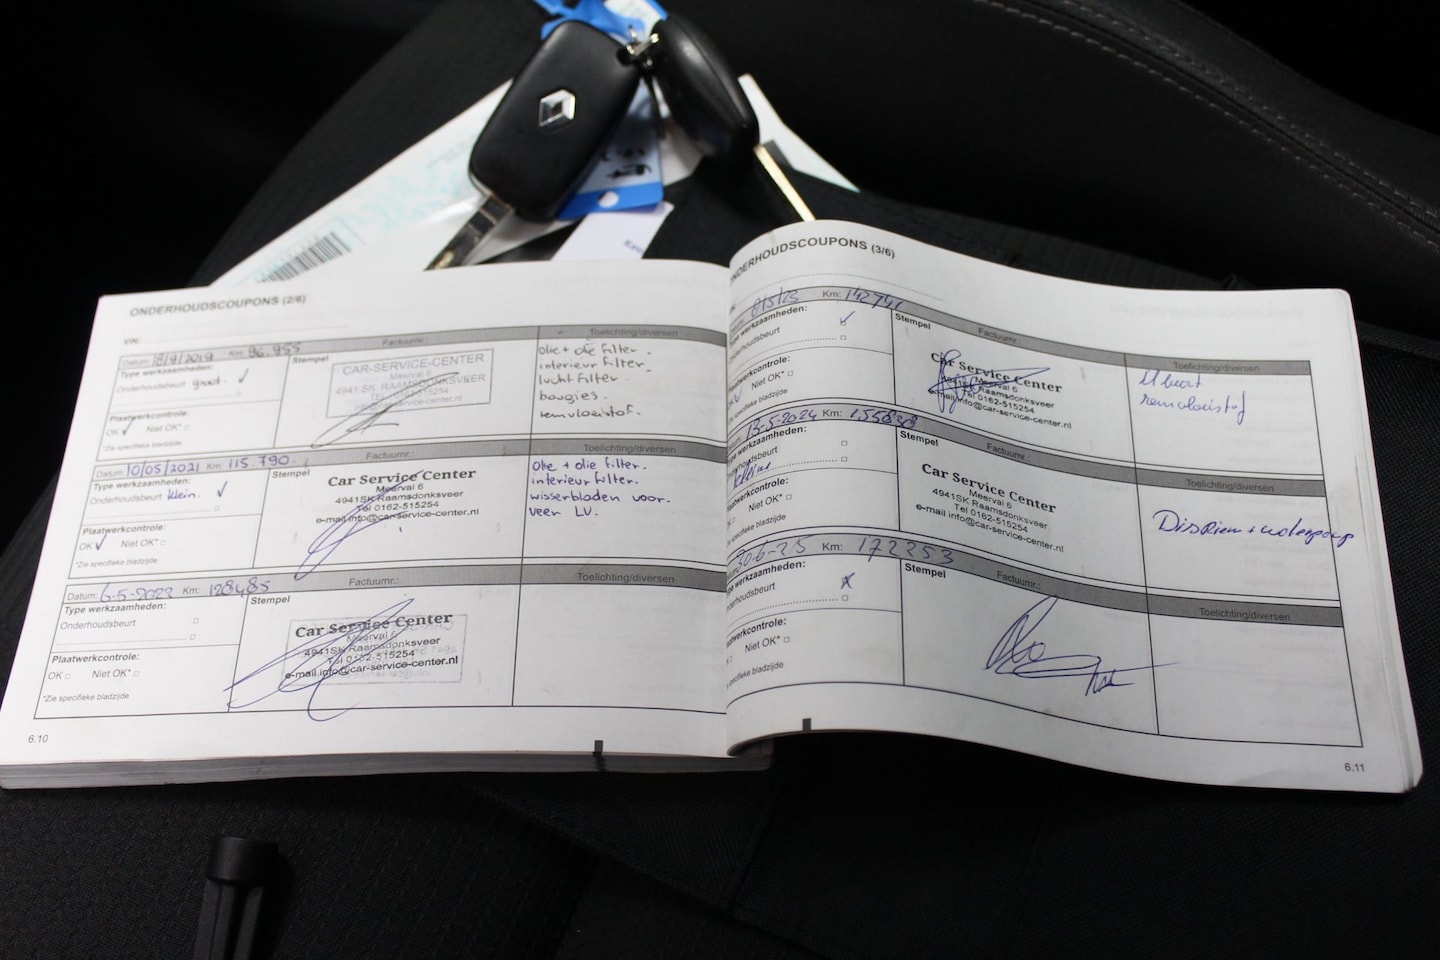 ONDERHOUDSCOUPONS (2/6)
VIN:
Datum: 18/9/2019 Km: 96.955
Factuurnr.:
Toelichting/diversen
Type werkzaamheden:
Onderhoudsbeurt groot.
Plaatwerkcontrole:
OK Niet OK*
*Zie specifieke bladzijde
Stempel
CAR-SERVICE-CENTER
Meerval 6
4941 SK RAAMSDONKSVEER
TEL. 0162-515254
olie + olie filter.
interieur filter.
lucht filter.
bougies.
remvloeistof.
Datum: 10/05/2021 Km: 115.790.
Toelichting/diversen
Type werkzaamheden:
Onderhoudsbeurt klein.
Plaatwerkcontrole:
OK Niet OK*
*Zie specifieke bladzijde
Stempel
Car Service Center
Meerval 6
4941SK Raamsdonksveer
Tel 0162-515254
e-mail info@car-service-center.nl
Olie + olie filter.
interieur filter.
wisserbladen voor.
veer LV.
Datum: 6-5-2022 Km: 128485
Factuurnr.:
Toelichting/diversen
Type werkzaamheden:
Onderhoudsbeurt
Plaatwerkcontrole:
OK Niet OK*
*Zie specifieke bladzijde
Stempel
Car Service Center
Meerval 6
4941SK Raamsdonksveer
Tel 0162-515254
e-mail info@car-service-center.nl
6.10
ONDERHOUDSCOUPONS (3/6)
8/5/23 Km:
Factuurnr.:
Toelichting/diversen
Type werkzaamheden:
Onderhoudsbeurt
Plaatwerkcontrole:
Niet OK*
*Zie specifieke bladzijde
Stempel
Car Service Center
Meerval 6
Tel 0162-515254
e-mail info@car-service-center.nl
remvloeistof
Datum: 13-5-2024 Km: 155838
Factuurnr.:
Toelichting/diversen
Type werkzaamheden:
Onderhoudsbeurt
Plaatwerkcontrole:
Niet OK*
Zie specifieke bladzijde
Stempel
Car Service Center
Meerval 6
4941SK Raamsdonksveer
Tel 0162-515254
e-mail info@car-service-center.nl
Dis Riem + waterpomp
30-6-25 Km: 172253
Factuurnr.:
Toelichting/diversen
Type werkzaamheden:
Onderhoudsbeurt
Plaatwerkcontrole:
Niet OK*
*Zie specifieke bladzijde
Stempel
6.11